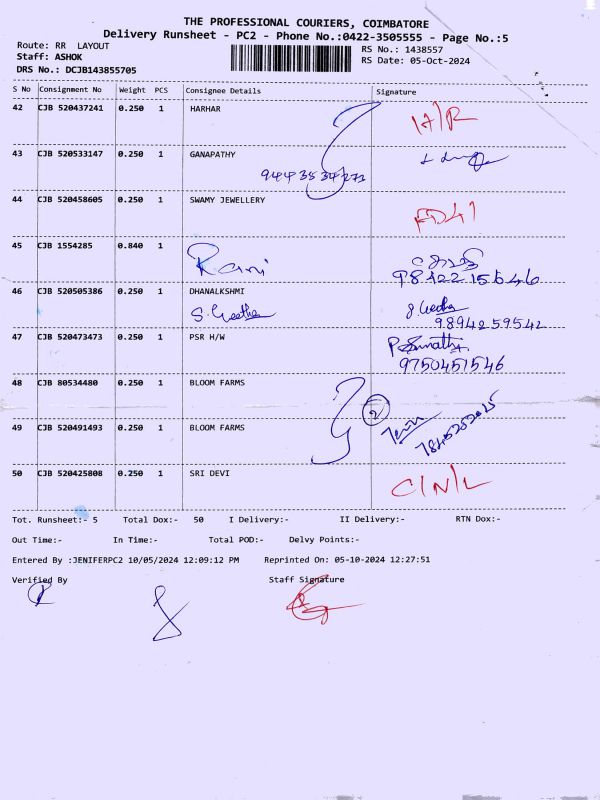 THE PROFESSIONAL COURIERS, COIMBATORE
Delivery Runsheet - PC2 - Phone No.:0422-3505555 - Page No.:5
Route: RR LAYOUT
Staff: ASHOK
DRS No.: DCJB143855705
RS No.: 1438557
RS Date: 05-Oct-2024
S No Consignment No Weight PCS Consignee Details Signature
42 CJB 520437241 0.250 1 HARHAR
43 CJB 520533147 0.250 1 GANAPATHY
44 CJB 520458605 0.250 1 SWAMY JEWELLERY
45 CJB 1554285 0.840 1
Rani
98422 15646
46 CJB 520505386 0.250 1 DHANALKSHMI
S. Geetha S. Geetha
9894259542
47 CJB 520473473 0.250 1 PSR H/W
9750451546
48 CJB 80534480 0.250 1 BLOOM FARMS
2
49 CJB 520491493 0.250 1 BLOOM FARMS
50 CJB 520425808 0.250 1 SRI DEVI
C/N/L
Tot. Runsheet:- 5 Total Dox:- 50 I Delivery:- II Delivery:- RTN Dox:-
Out Time:- In Time:- Total POD:- Delvy Points:-
Entered By :JENIFERPC2 10/05/2024 12:09:12 PM Reprinted On: 05-10-2024 12:27:51
Verified By Staff Signature